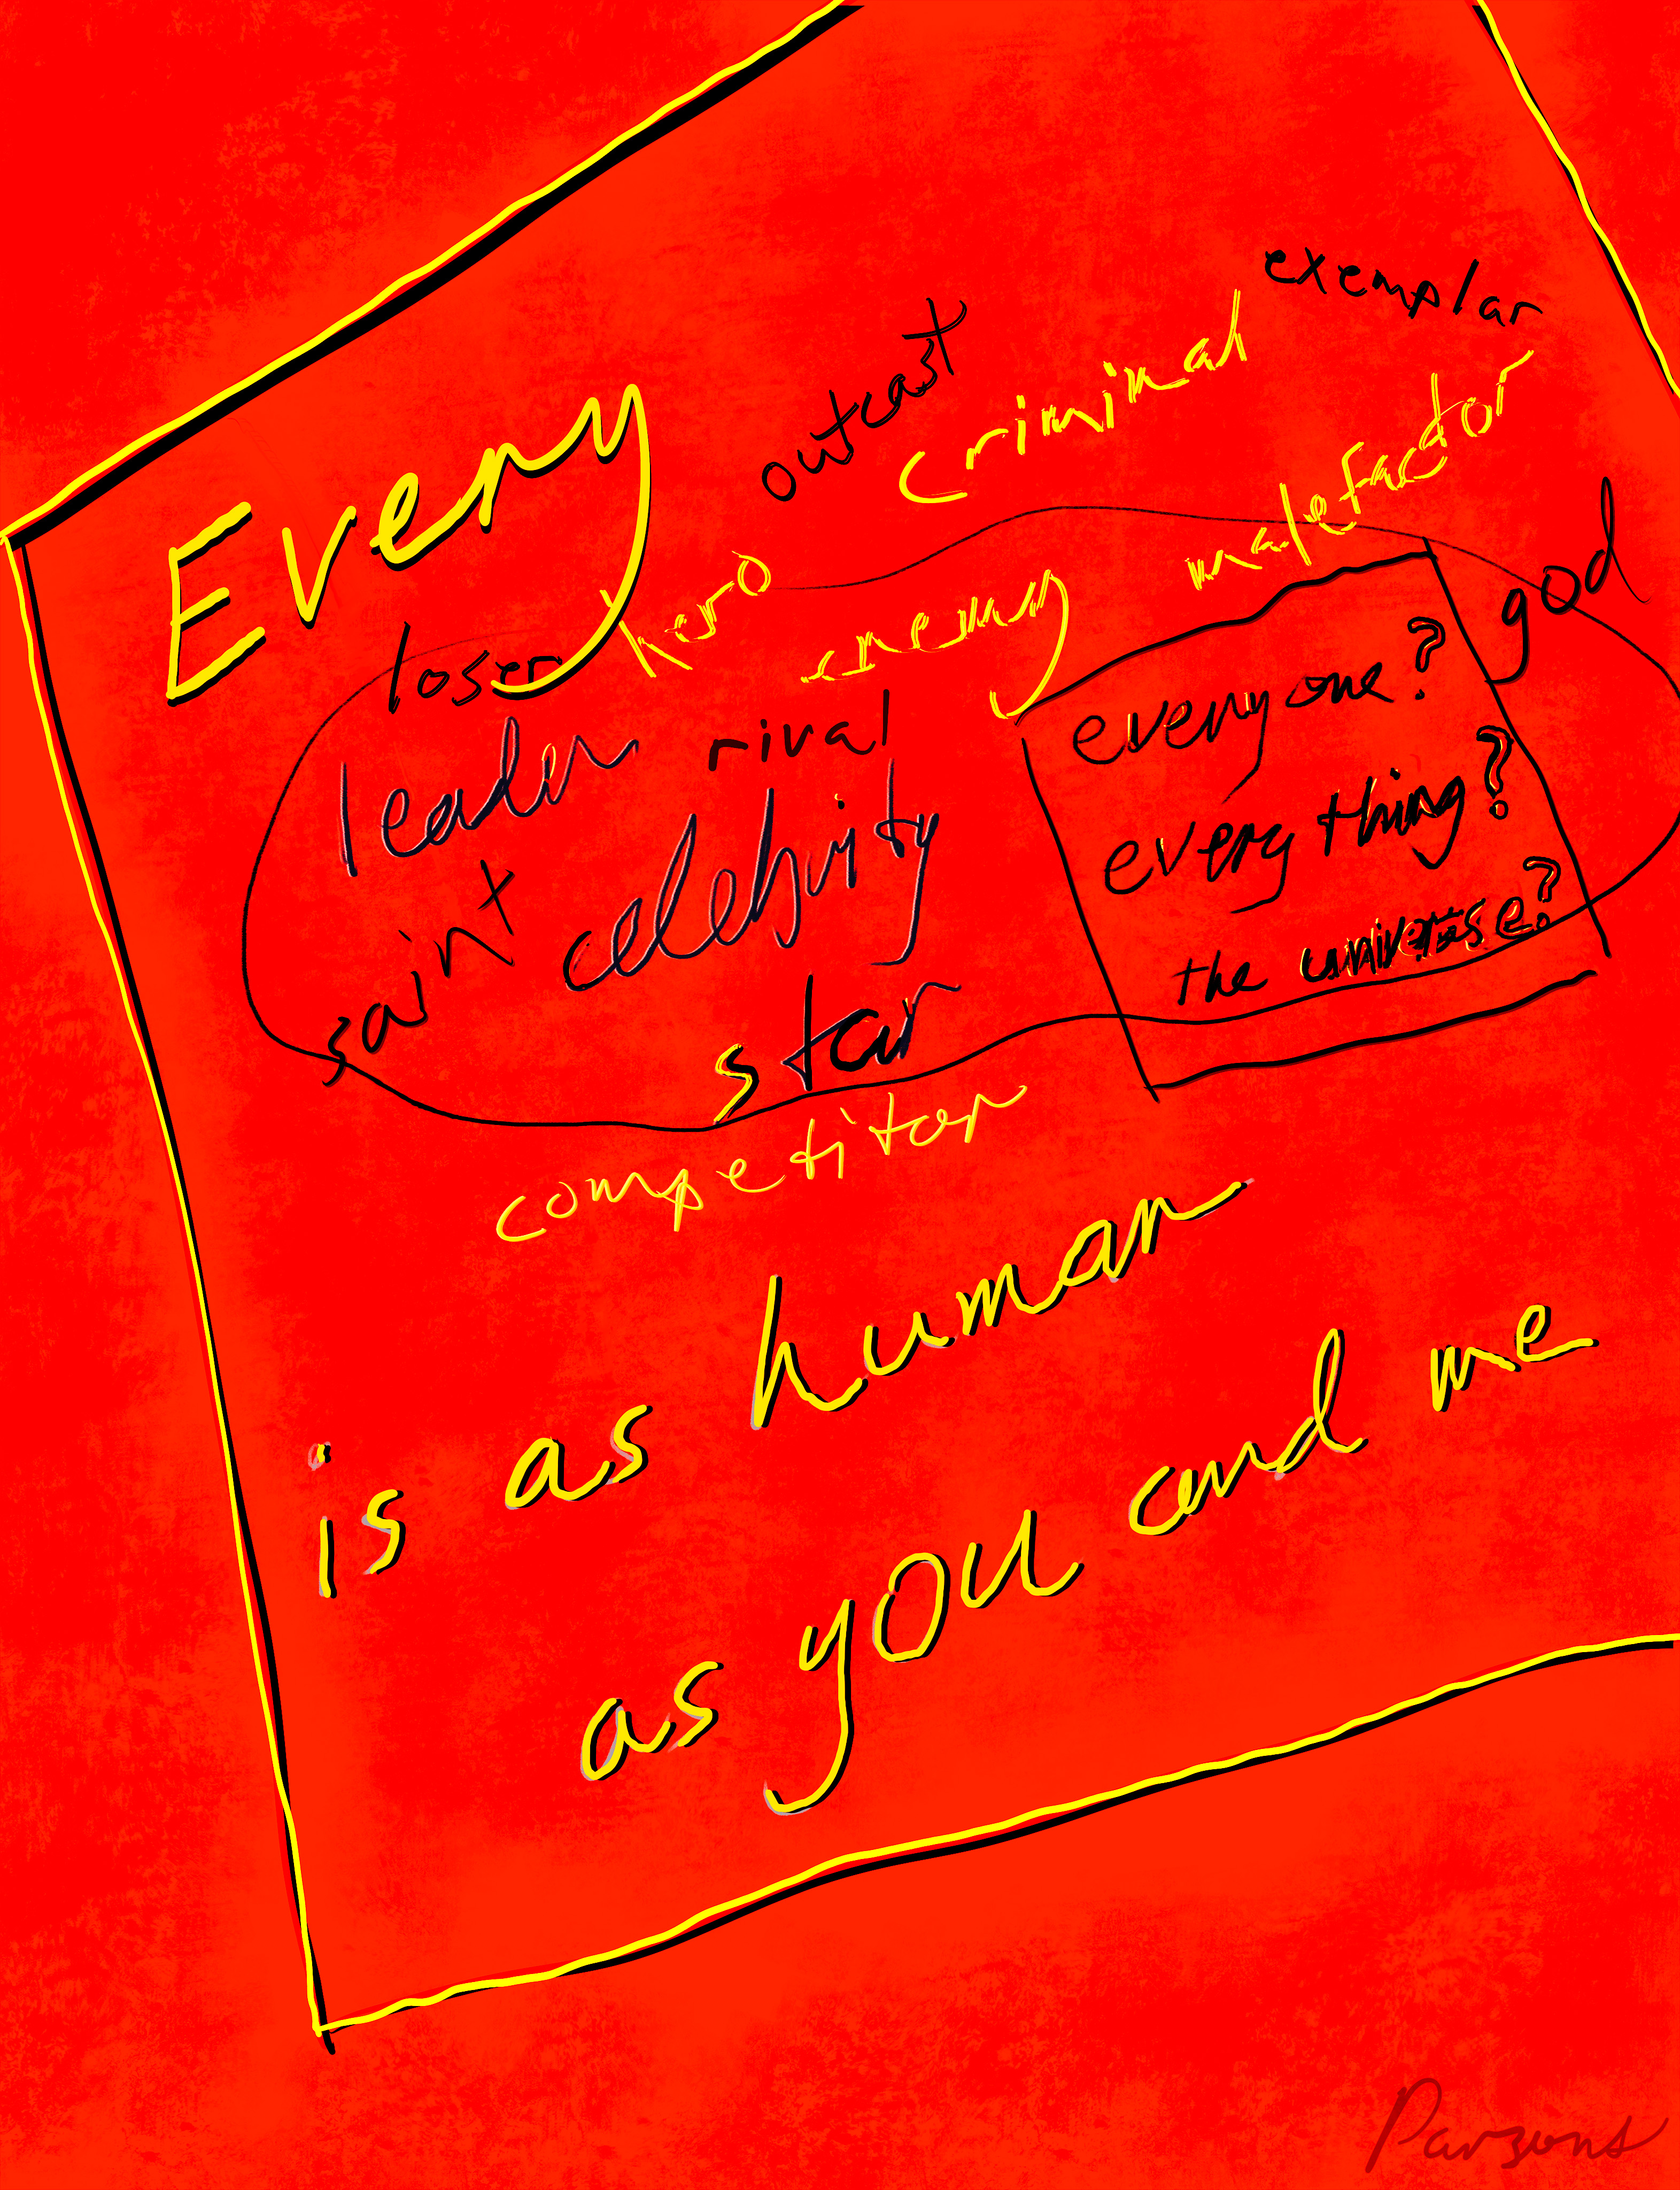 exemplar
outcast
criminal
Every
malefactor
hero
god
enemy
loser
everyone?
leader
rival
everything?
celebrity
saint
the universe?
star
competitor
is as human
as you and me
Parsons